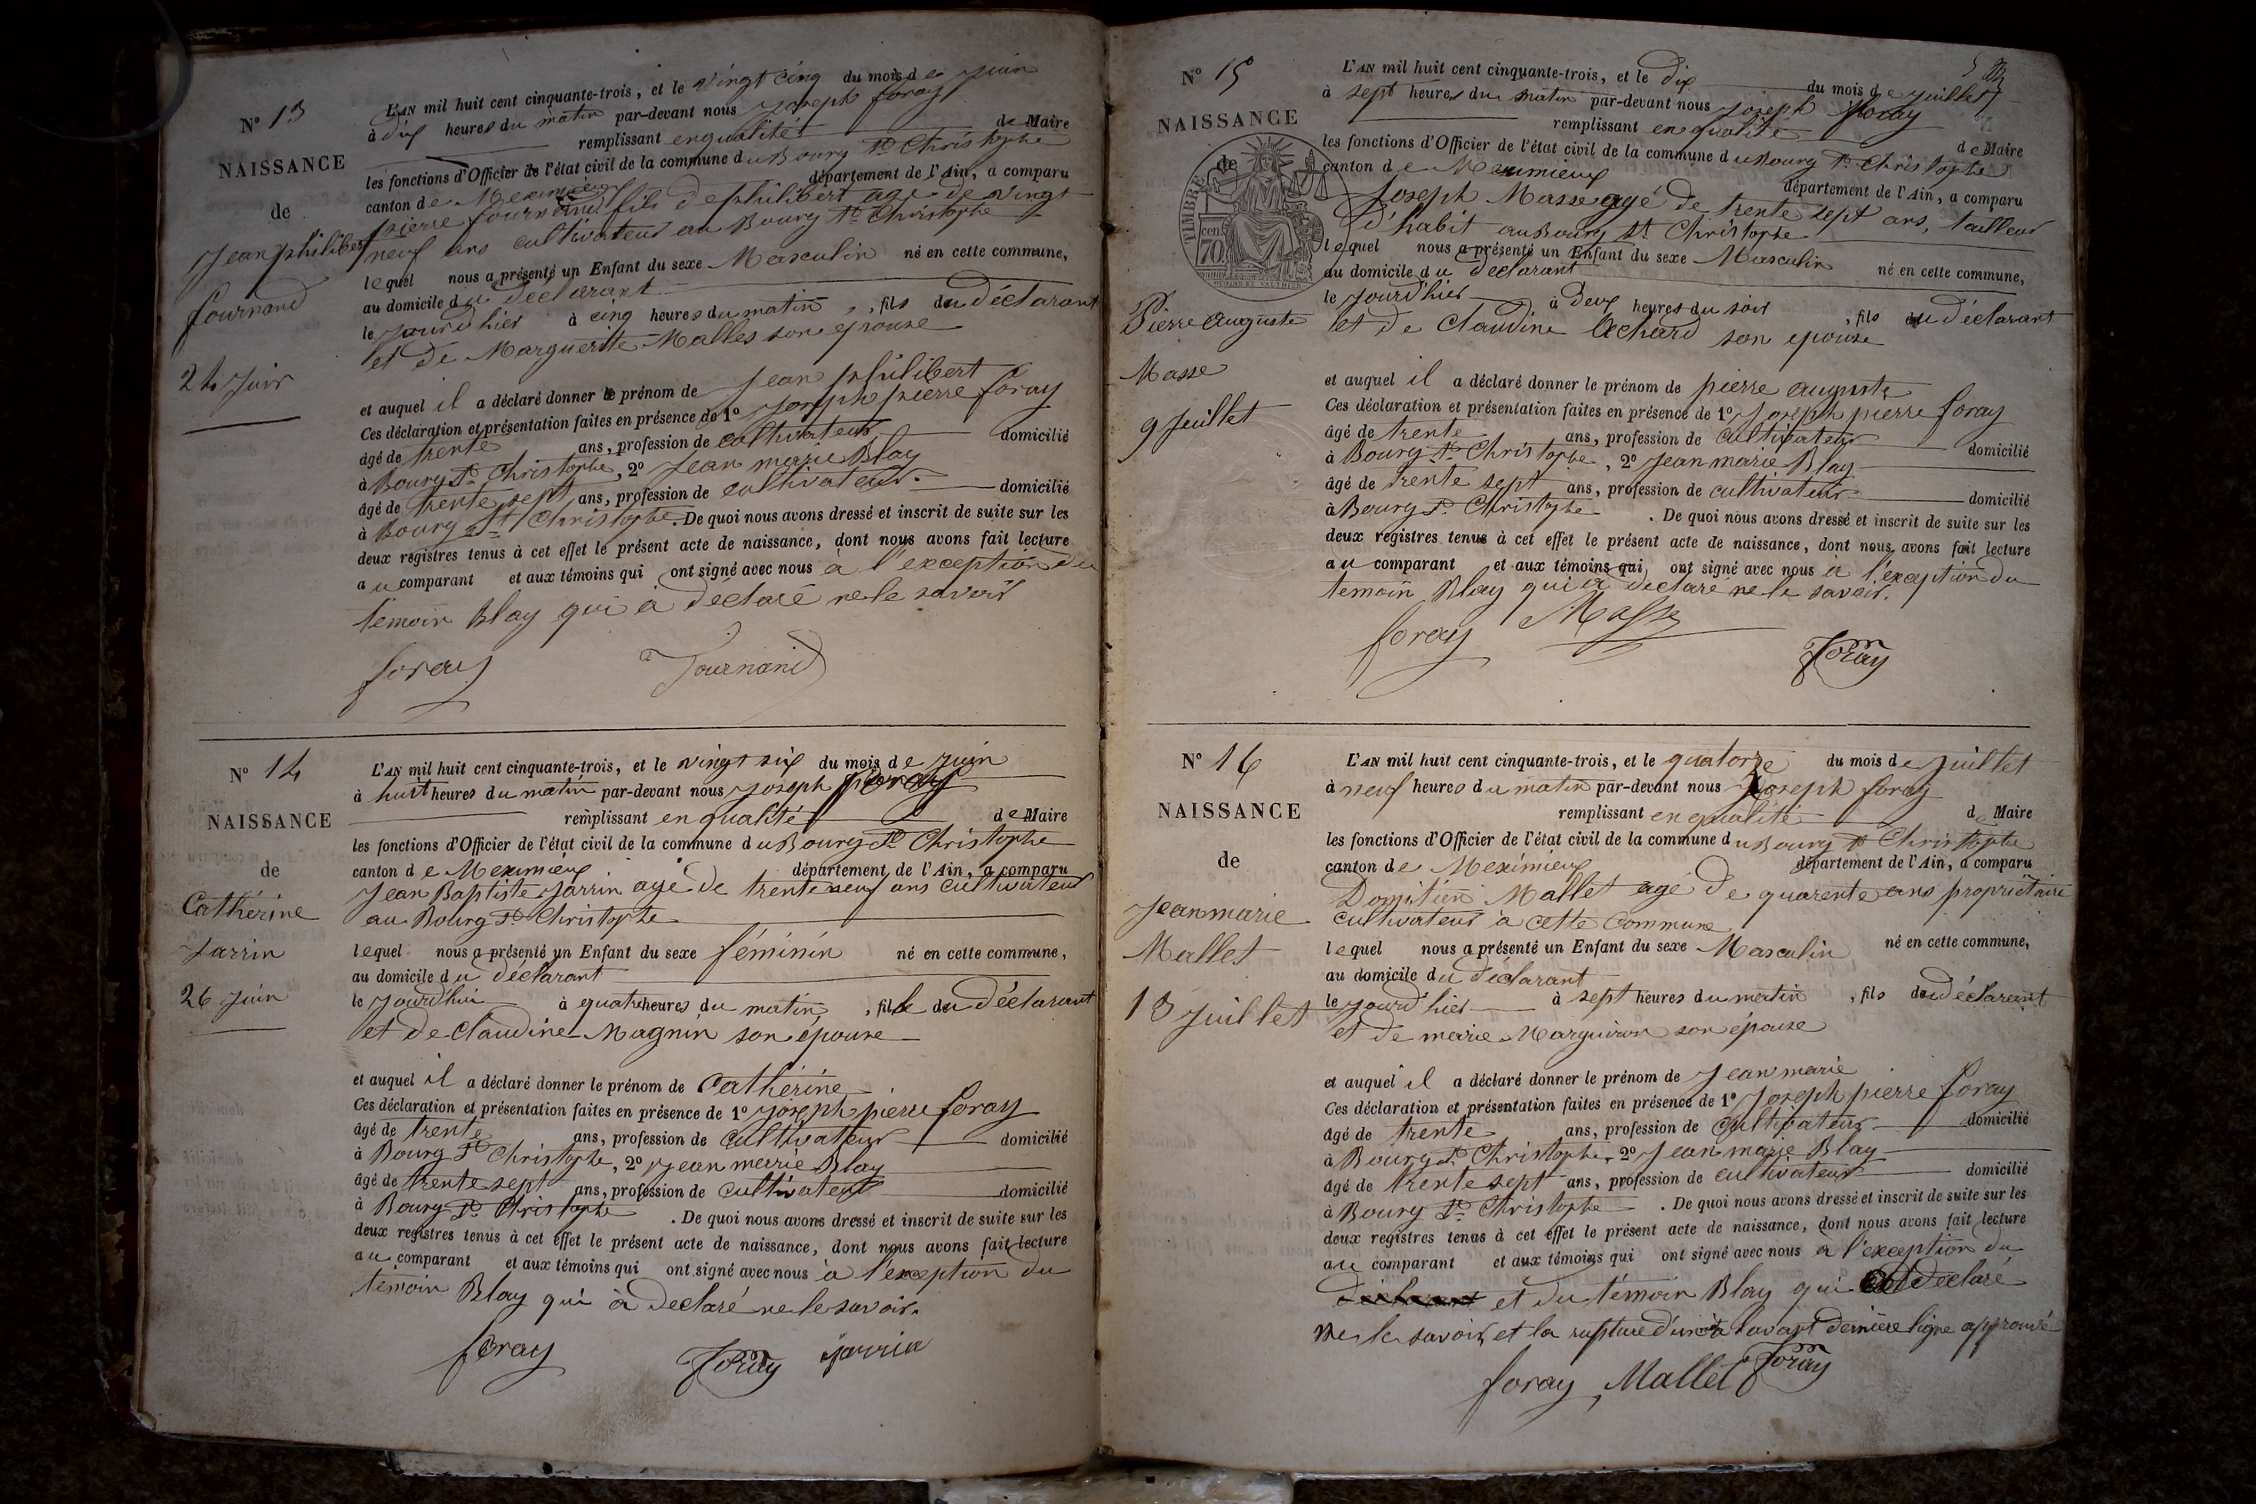 N° 13
NAISSANCE
de
Jean philibert
fournand
24 Juin
L'AN mil huit cent cinquante-trois, et le vingt cinq du mois de Juin
à dix heures du matin par-devant nous Joseph foray
remplissant en qualité de Maire
les fonctions d'Officier de l'état civil de la commune du Bourg St Christophe
canton de Meximieux département de l'Ain, a comparu
pierre fournand fils de philibert agé de vingt
neuf ans cultivateur au Bourg St Christophe
lequel nous a présenté un Enfant du sexe Masculin né en cette commune,
au domicile du déclarant
le jourd'hier à cinq heures du matin, fils du déclarant
et de Marguerite Malles son épouse
et auquel il a déclaré donner le prénom de Jean philibert
Ces déclaration et présentation faites en présence de 1° Joseph pierre foray
âgé de trente ans, profession de cultivateur domicilié
à Bourg St Christophe, 2° Jean marie Blay
âgé de trente sept ans, profession de cultivateur domicilié
à Bourg St Christophe. De quoi nous avons dressé et inscrit de suite sur les
deux registres tenus à cet effet le présent acte de naissance, dont nous avons fait lecture
au comparant et aux témoins qui ont signé avec nous à l'exception du
témoin Blay qui a déclaré ne le savoir
foray fournand
N° 14
NAISSANCE
de
Cathérine
Jarrin
26 Juin
L'AN mil huit cent cinquante-trois, et le vingt six du mois de Juin
à huit heures du matin par-devant nous Joseph foray
remplissant en qualité de Maire
les fonctions d'Officier de l'état civil de la commune du Bourg St Christophe
canton de Meximieux département de l'Ain, a comparu
Jean Baptiste Jarrin agé de trente neuf ans cultivateur
au Bourg St Christophe
lequel nous a présenté un Enfant du sexe féminin né en cette commune,
au domicile du déclarant
le jourd'hui à quatre heures du matin, fille du déclarant
et de Claudine Magnin son épouse
et auquel il a déclaré donner le prénom de Cathérine
Ces déclaration et présentation faites en présence de 1° Joseph pierre foray
âgé de trente ans, profession de cultivateur domicilié
à Bourg St Christophe, 2° Jean marie Blay
âgé de trente sept ans, profession de cultivateur domicilié
à Bourg St Christophe. De quoi nous avons dressé et inscrit de suite sur les
deux registres tenus à cet effet le présent acte de naissance, dont nous avons fait lecture
au comparant et aux témoins qui ont signé avec nous à l'exception du
témoin Blay qui à declaré ne le savoir.
foray foray jarrin
5
N° 15
NAISSANCE
de
TIMBRE
70 cen
Pierre auguste
Masse
9 Juillet
L'AN mil huit cent cinquante-trois, et le dix du mois de Juillet
à sept heures du matin par-devant nous Joseph foray
remplissant en qualité de Maire
les fonctions d'Officier de l'état civil de la commune du Bourg St Christophe
canton de Meximieux département de l'Ain, a comparu
Joseph Masse agé de trente sept ans, tailleur
d'habit au Bourg St Christophe
lequel nous a présenté un Enfant du sexe Masculin né en cette commune,
au domicile du déclarant
le jourd'hier à deux heures du soir, fils du déclarant
et de Claudine Achard son épouse
et auquel il a déclaré donner le prénom de pierre auguste
Ces déclaration et présentation faites en présence de 1° Joseph pierre foray
âgé de trente ans, profession de cultivateur domicilié
à Bourg St Christophe, 2° Jean marie Blay
âgé de trente sept ans, profession de cultivateur domicilié
à Bourg St Christophe. De quoi nous avons dressé et inscrit de suite sur les
deux registres tenus à cet effet le présent acte de naissance, dont nous avons fait lecture
au comparant et aux témoins qui ont signé avec nous à l'exception du
témoin Blay qui à declaré ne le savoir.
foray Masse foray
N° 16
NAISSANCE
de
Jean marie
Mallet
13 Juillet
L'AN mil huit cent cinquante-trois, et le quatorze du mois de Juillet
à neuf heures du matin par-devant nous Joseph foray
remplissant en qualité de Maire
les fonctions d'Officier de l'état civil de la commune du Bourg St Christophe
canton de Meximieux département de l'Ain, a comparu
Domitien Mallet agé de quarente ans propriétaire
cultivateur à cette commune
lequel nous a présenté un Enfant du sexe Masculin né en cette commune,
au domicile du déclarant
le jourd'hier à sept heures du matin, fils du déclarant
et de marie Marguiron son épouse
et auquel il a déclaré donner le prénom de Jean marie
Ces déclaration et présentation faites en présence de 1° Joseph pierre foray
âgé de trente ans, profession de cultivateur domicilié
à Bourg St Christophe, 2° Jean marie Blay
âgé de trente sept ans, profession de cultivateur domicilié
à Bourg St Christophe. De quoi nous avons dressé et inscrit de suite sur les
deux registres tenus à cet effet le présent acte de naissance, dont nous avons fait lecture
au comparant et aux témoins qui ont signé avec nous à l'exception du
et du témoin Blay qui declaré
ne le savoir, et la rupture d'un à l'avant dernière ligne approuvé
foray Mallet foray